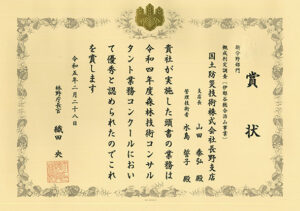 賞状
新分野部門
国土防災技術株式会社長野支店
支店長 山田 泰弘 殿
管理技術者 水島 誓子 殿
貴社が実施した頭書の業務は
令和四年度森林技術コンサル
タント業務コンクールにおい
て優秀と認められたのでこれ
を賞します
令和五年二月二十八日
林野庁長官 織田 央